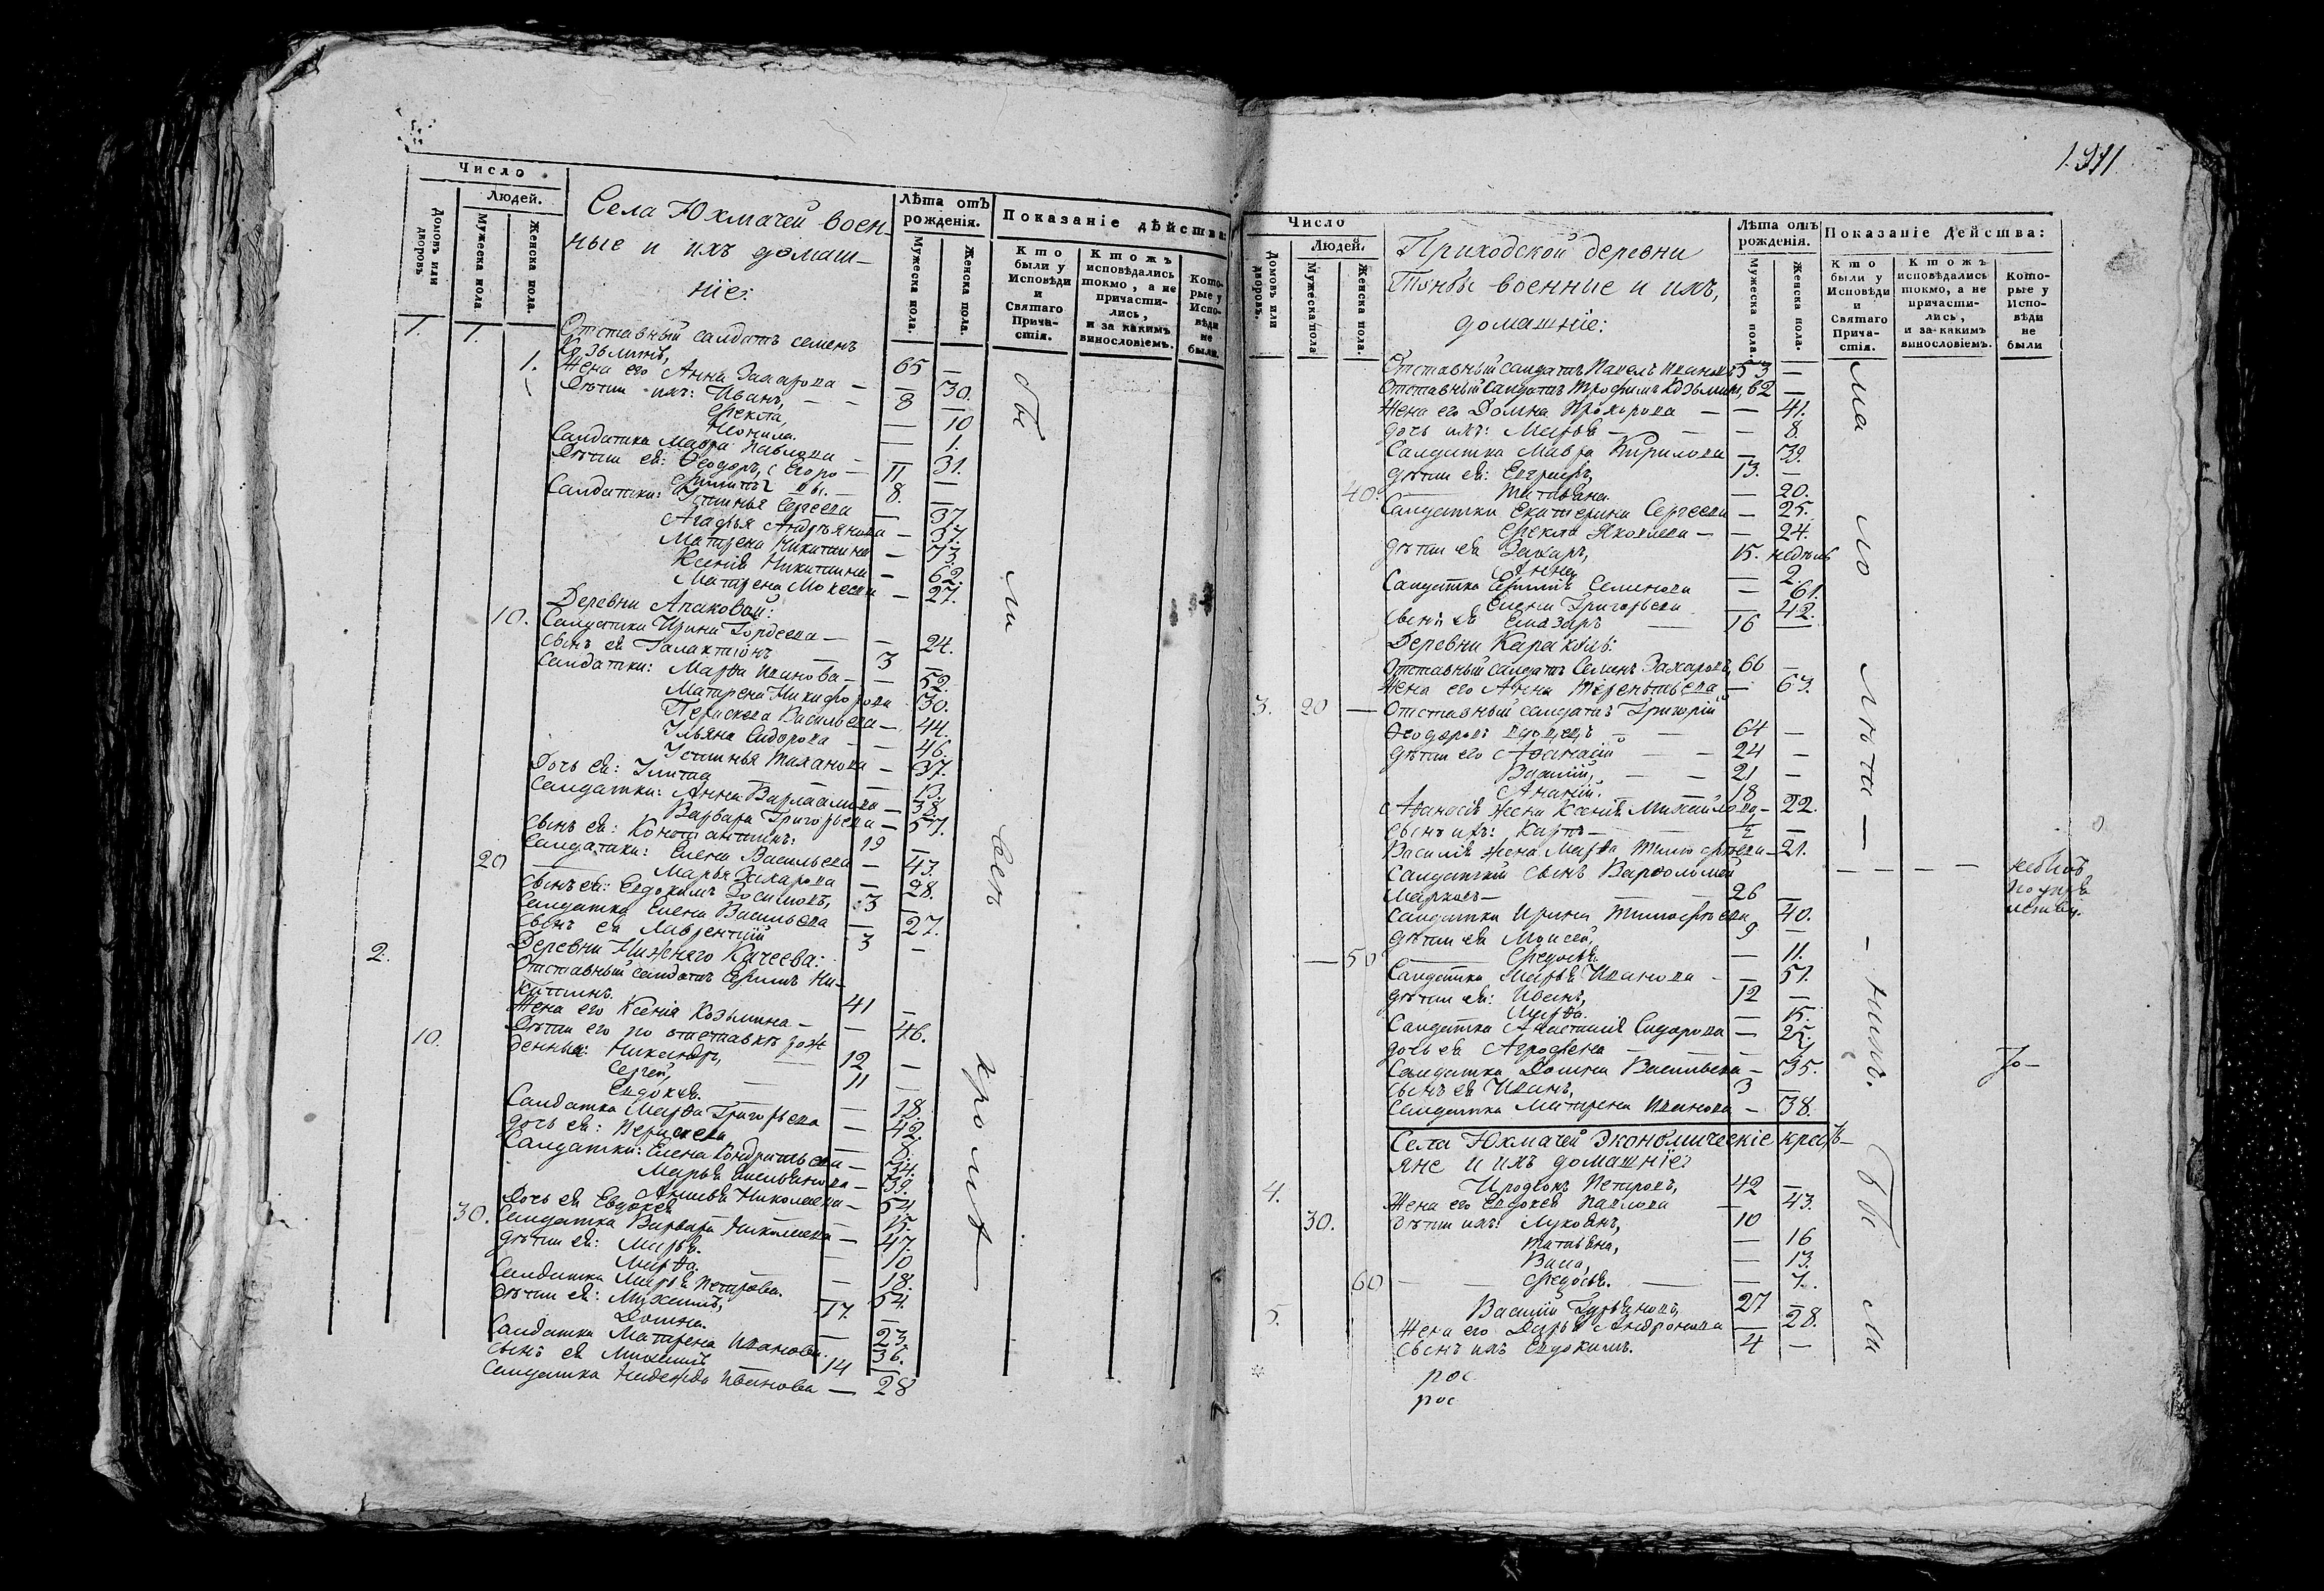 Число
Людей.
Домовъ или дворовъ.
Мужеска пола.
Женска пола.
Села Юхмачей воен-
ные и ихъ домаш-
ніе:
Лѣта отъ
рожденія.
Мужеска пола.
Женска пола.
Показаніе дѣйства:
Кто
были у
Исповѣди
и
Святаго
Прича-
стія.
Ктожъ
исповѣдались
токмо, а не
причасти-
лись,
и за какимъ
винословіемъ.
Кото-
рые у
Испо-
вѣди
не
были.
1. 1. Отставный салдатъ Семенъ
Козьминъ, 65 —
1. Жена его Анна Захарова — — 30.
Дѣти ихъ: Иванъ, — — 8 —
Фекла, — 10
Неонила. — 1.
Салдатка Мавра Павлова — — 31.
Дѣти ея: Ѳеодоръ, 11 —
8. —
Салдатки: Устинья Сергеева — 37
Агафья Андреянова — 37.
Матрена Никитина — 73
Ксенія Никитина — 62.
Матрена Мокеева — 27.
Деревни Апаковой:
10. Салдатка Ирина Гордеева — — 24.
Сынъ ея Галактіонъ — 3 —
Салдатки: Марѳа Иванова — — 52.
Матрена Никифорова 30.
Василь ева — 44.
Ульяна Сидорова — — 46.
Устинья — 37.
Дочь ея: Улита — 13.
Салдатки: Анна Варлаамова — 38.
Варвара Григорьева — 57.
Сынъ ея: Константинъ: 19 —
Салдатки: Елена Васильева — 43.
20 Марья Захарова — 28.
Сынъ ея: Евдокимъ 3 —
Салдатка Елена Васильева — 27.
Сынъ ея Лаврентій 3 —
2. Деревни Нижняго Качеева:
Отставный салдатъ Ни-
китинъ. 41 —
Жена его Ксенія Козьмина — — 46.
Дѣти его по отставкѣ рож
10. денныя: Никандръ, 12 —
Сергей, 11 —
Евдокея. — 18.
Салдатка Марѳа Григорьева — 42
дочь ея: — 8.
Салдатки: Елена Кондратьева — 34.
Марья — 39.
Николаева — 54.
Дочь ея Евдокея — 15.
30. Салдатка Варвара Николаева — 47.
дѣти ея: Марья. — 10
Марѳа. — 18.
Салдатка Марья Петрова. 54.
Дѣти ея: Михаилъ, 17. —
Домна. — 23.
Салдатка Матрена Иванова. 36.
Сынъ ея Михаилъ 14 —
Салдатка Надежда Иванова — 28
бы
ли
всѣ
кромѣ
1.911
Число
Людей.
Домовъ или дворовъ.
Мужеска пола
Женска пола.
Приходской деревни
военные и ихъ,
домашніе:
Лѣта отъ
рожденія.
Мужеска пола.
Женска пола.
Показаніе Действа:
Кто
были у
Исповѣди
и
Святаго
Прича-
стія.
Ктожъ
исповѣдались
токмо, а не
причасти-
лись,
и за какимъ
винословіемъ.
Кото-
рые у
Испо-
вѣди
не
были
Отставный салдатъ Павелъ Ивановъ 53 —
Отставный салдатъ Трофимъ Козьминъ, 62 —
Жена его Домна Прохорова — — 41.
дочь ихъ: Марья — — — 8.
Салдатка Мавра Кирилова — 39.
дѣти ея: 13. —
40. Татьяна. — 20.
Салдатки Екатерина Сергеева — 25.
Фекла Яковлева — — 24.
дѣти ея Захаръ, 15. недѣль
Анна — 2.
Салдатка Семенова — 61.
Елена Григорьева — 42.
Сынъ ея Елазаръ — 16 —
Деревни Караколь:
Отставный салдатъ Семенъ Захаровъ, 66 —
Жена его Анна Терентьева, — 63.
3. 20 — Отставный салдатъ Григорій
Ѳеодоровъ вдовецъ — 64 —
дѣти его Аѳанасій — — 24 —
Василій, — — 21 —
Ананій. 18 —
Аѳанасія жена Ксенія Михайлова — 22.
сынъ ихъ: Карпъ — 1/2 —
Василія жена Марѳа Тимофѣева — 21.
Салдатскій сынъ Варѳоломей — — — — небылъ
Марковъ — 26 —
Салдатка Ирина Тимофѣева 40.
дѣти ея Моисей, 9 —
— 50 Федосья. — 11.
Салдатка Марья Иванова — — 51.
дѣти ея: Иванъ, 12 —
Марѳа. — 15.
Салдатка Анастасия Сидорова — 25.
дочь ея Агрофена — —
Салдатка Домна Васильева — 35.
Сынъ ея Иванъ, 3 —
Салдатка Матрена Иванова — 38.
Села Юхмачей Экономическіе кресть-
яне и ихъ домашніе:
4. Иродіонъ Петровъ, 42 —
Жена его Евдокея Павлова — 43.
30. дѣти ихъ: Лукоянъ, 10
Татьяна, — 16
Васса, — 13.
60 — — Федосья. — — 7.
5. Василій Гурьяновъ, 27 —
Жена его Дарья Андронова — 28.
сынъ ихъ Евдокимъ. 4 —
рос
рос
ма
ло
лѣт
—
нихъ.
бы
ли